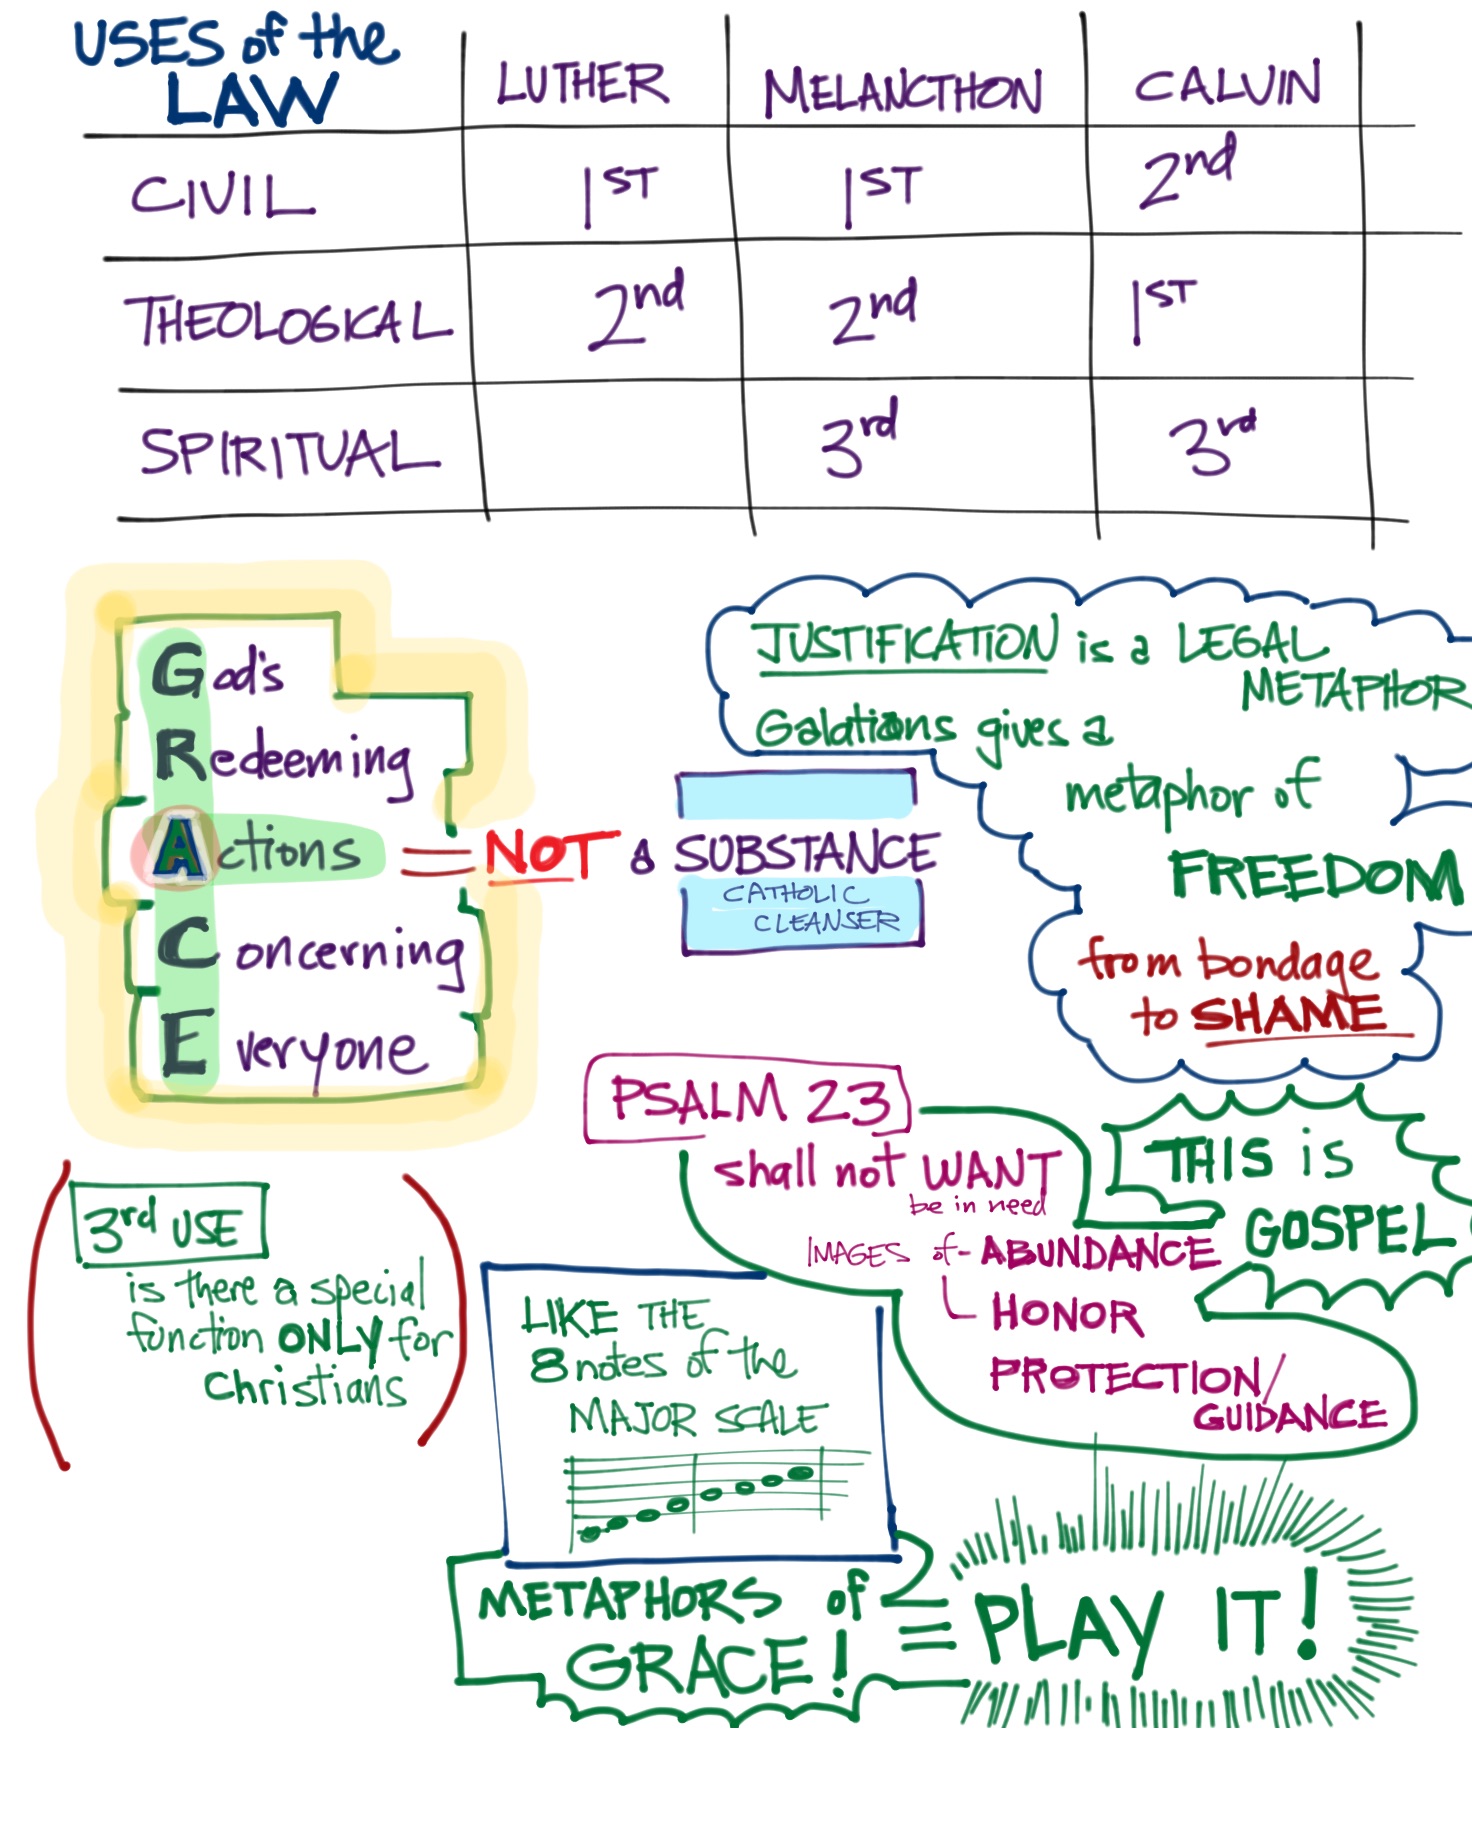 USES of the
LAW
LUTHER MELANCTHON CALVIN
CIVIL 1ST 1ST 2nd
THEOLOGICAL 2nd 2nd 1ST
SPIRITUAL 3rd 3rd
God's
Redeeming
Actions = NOT a SUBSTANCE
CATHOLIC
CLEANSER
Concerning
Everyone
JUSTIFICATION is a LEGAL
METAPHOR
Galatians gives a
metaphor of
FREEDOM
from bondage
to SHAME
PSALM 23
shall not WANT
be in need
IMAGES of - ABUNDANCE
HONOR
PROTECTION/
GUIDANCE
THIS is
GOSPEL
3rd USE
is there a special
function ONLY for
Christians
LIKE THE
8 notes of the
MAJOR SCALE
METAPHORS of
GRACE!
= PLAY IT!